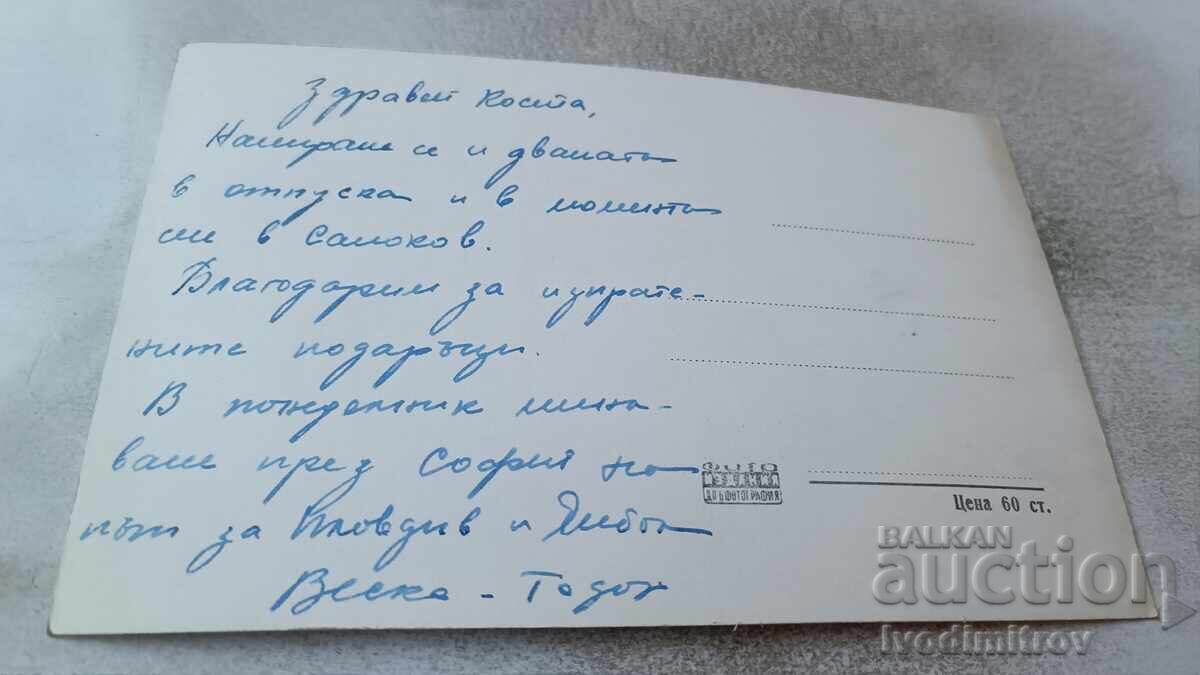 Здравей Коста,
Намираме се и двамата
в отпуска и в момента
сме в Самоков.
Благодарим за изпрате-
ните подаръци.
В понеделник мина-
ваме през София на
път за Пловдив и
Веска - Тодор
ФОТО
ИЗДАНИЯ
ДП БЪЛГ. ФОТОГРАФИЯ
Цена 60 ст.
BALKAN
auction
Ivodimitrov